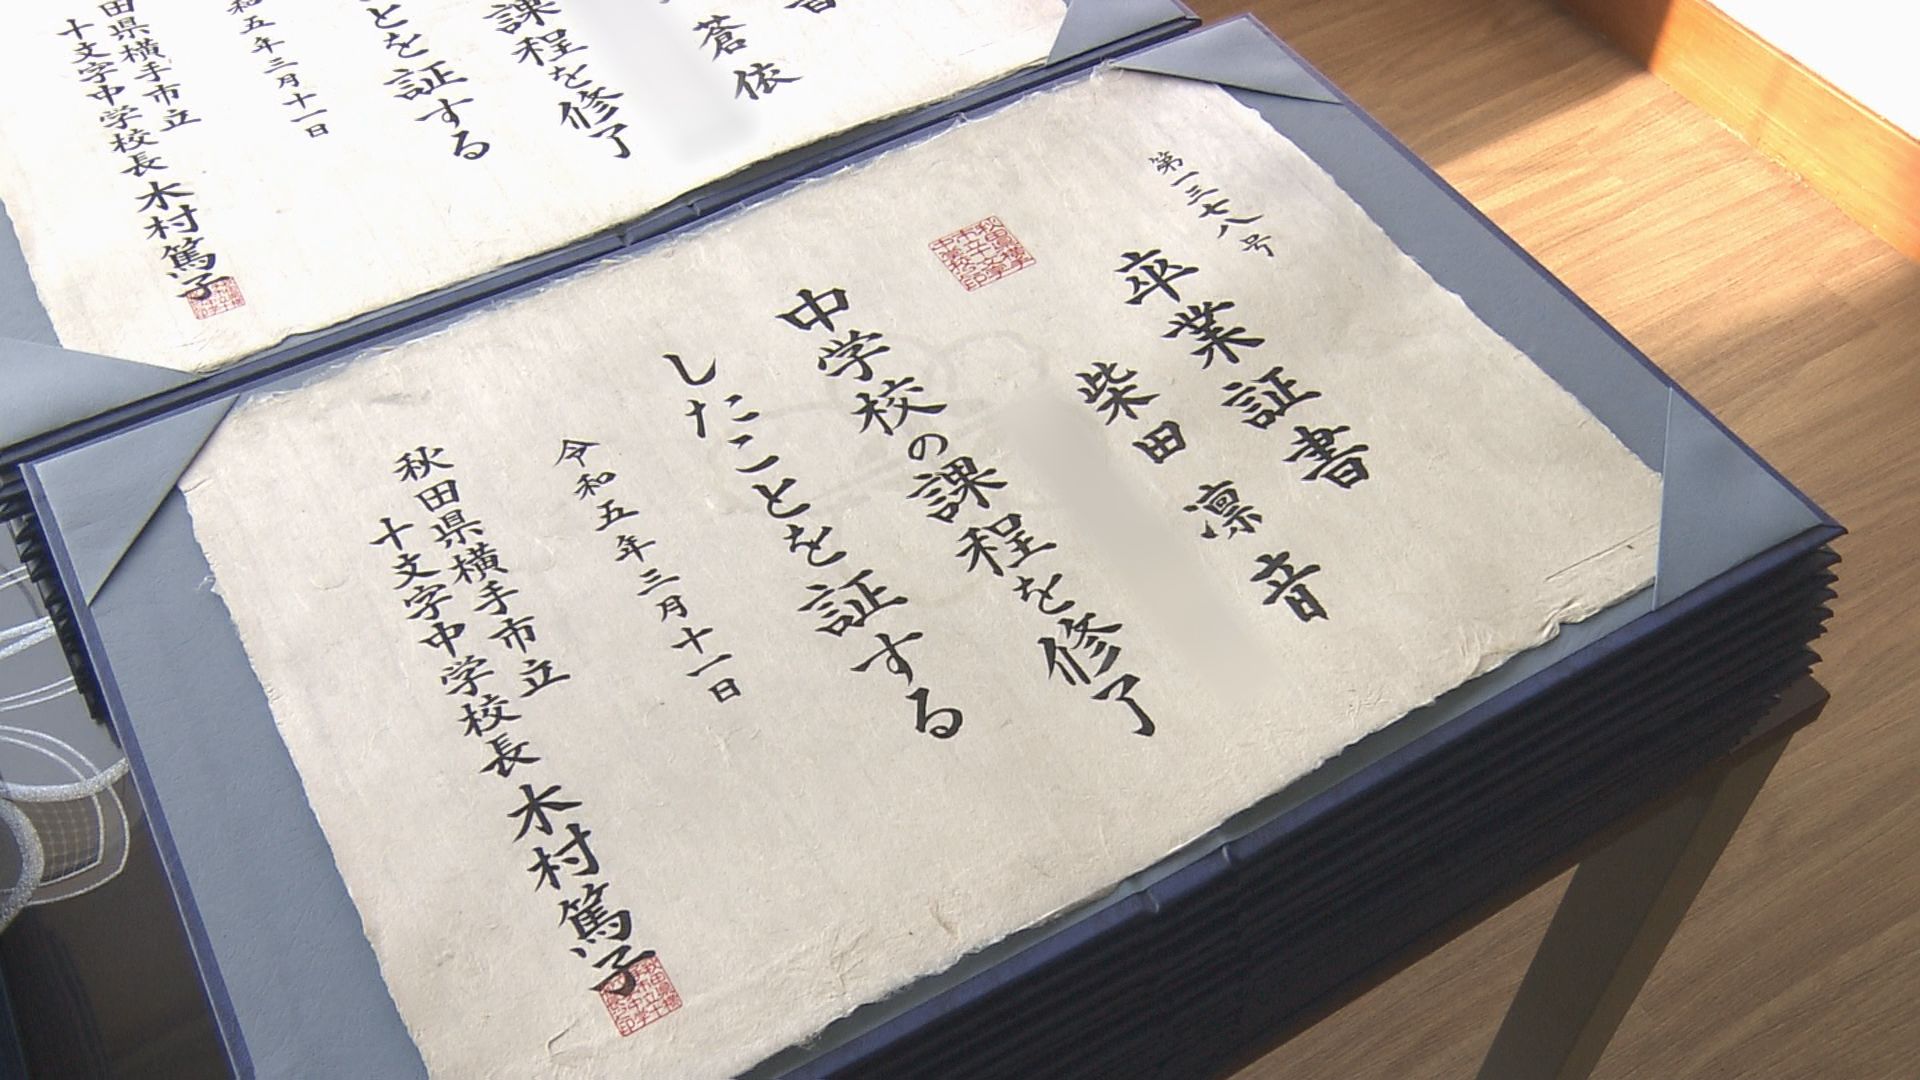 第一三七八号
卒業証書
柴田凛音
中学校の課程を修了
したことを証する
令和五年三月十一日
秋田県横手市立
十文字中学校長木村篤子
蒼依
課程を修了
とを証する
和五年三月十一日
田県横手市立
十文字中学校長木村篤子